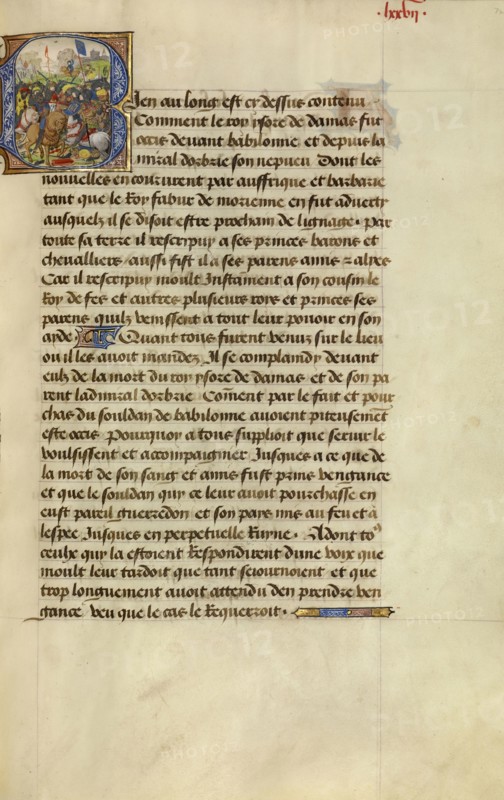 .lxxvij.
Bien au long est cy dessus contenu
Comment le roy ysore de damas fut
occis deuant babylonne et depuis la
miral dorbrie son nepueu Dont les
nouuelles en coururent par auffrique et barbarie
tant que le Roy fabur de morienne en fut aduerty
ausquelz il se disoit estre prochain de lignage. Par
toute sa terre il rescripuy a ses princes barons et
cheualliers aussi fist il a ses parens amis et alyes
Car il rescripuy moult Instament a son cousin le
Roy de fes et autres plusieurs roys et princes ses
parens quilz venissent a tout leur pouoir en son
ayde. Quant tous furent venuz sur le lieu
ou il les auoit mandez Il se complaindy deuant
eulx de la mort du roy ysore de damas et de son pa
rent ladmiral dorbrie Coment par le fait et pour
chas du souldan de babilonne auoient piteusemet
este occis Pourquoy a tous supplioit que seruir le
voulsissent et accompaignier Jusques a ce que de
la mort de son sang et amis fust prins vengance
et que le souldan quy ce leur auoit pourchasse en
eust pareil guerredon et son pays mis au feu et a
lespee Jusques en perpetuelle Ruyne. Adont to9
ceulx quy la estoient Respondirent dune voix que
moult leur tardoit que tant seiournoient et que
trop longuement auoit attendu den prendre ven
gance veu que le cas le Requeroit.